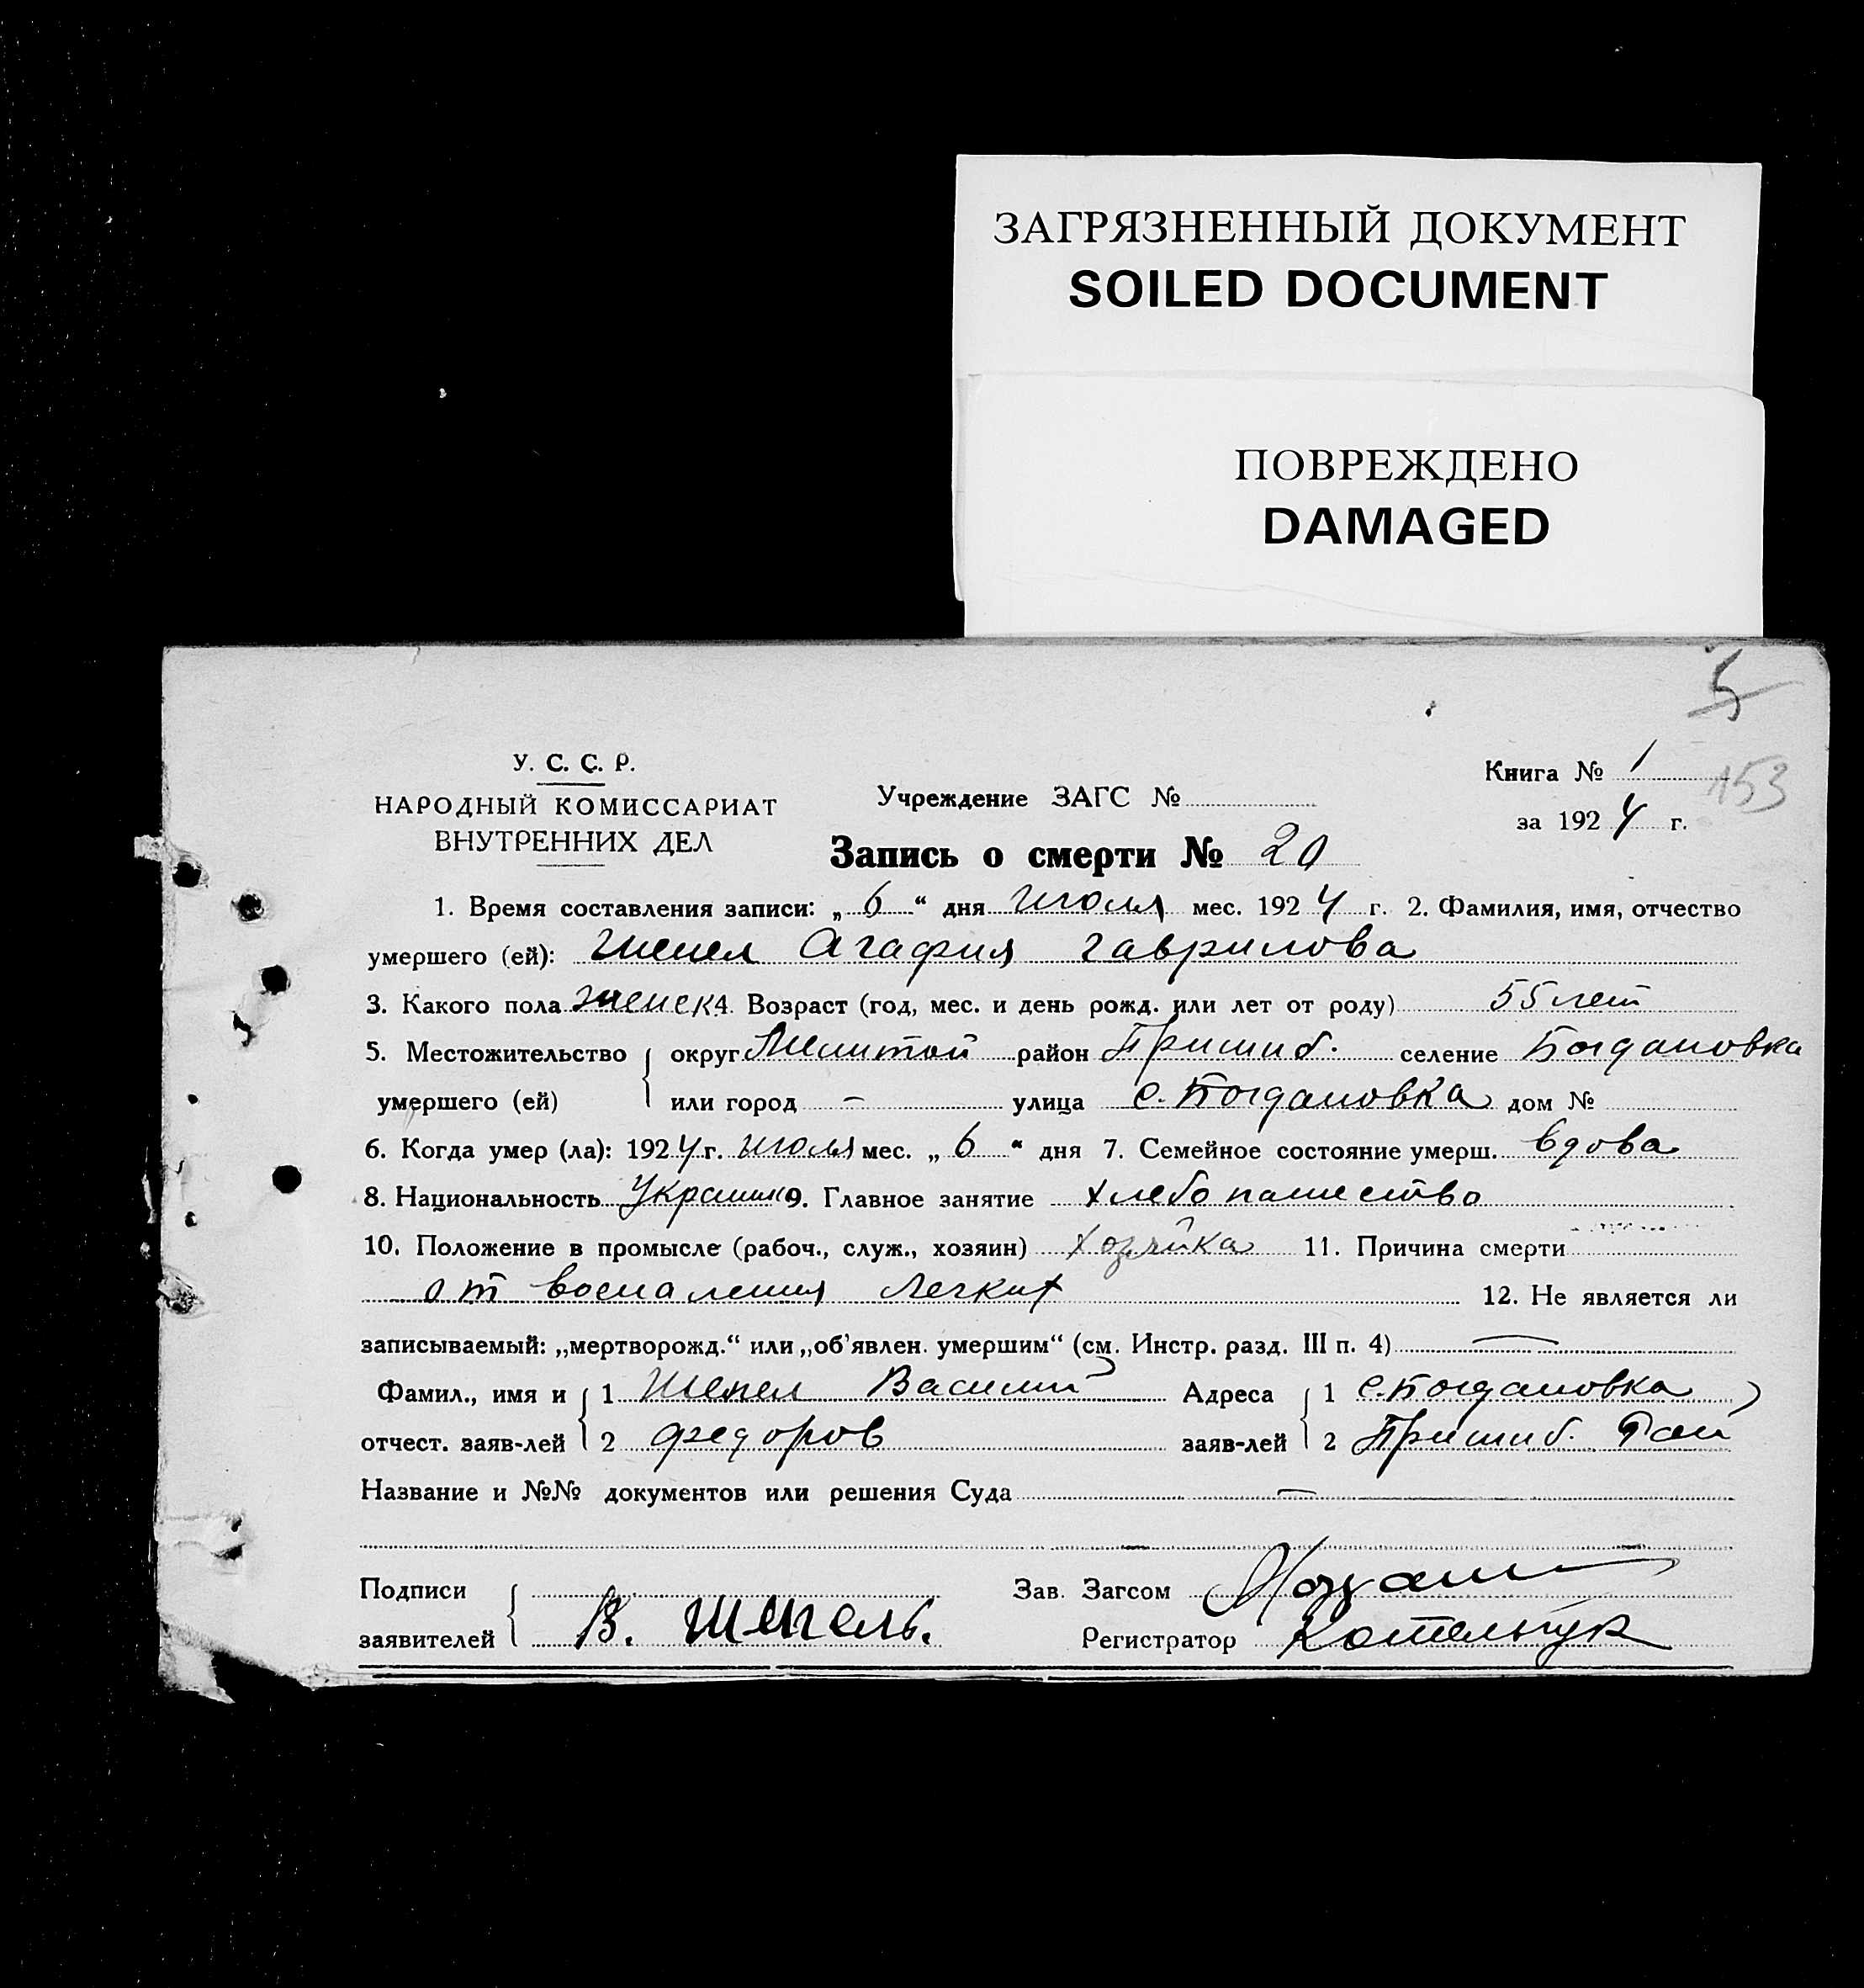 ЗАГРЯЗНЕННЫЙ ДОКУМЕНТ
SOILED DOCUMENT
ПОВРЕЖДЕНО
DAMAGED
5
У. С. С. Р.
НАРОДНЫЙ КОМИССАРИАТ
ВНУТРЕННИХ ДЕЛ
Учреждение ЗАГС №
Книга № 1
153
за 1924 г.
Запись о смерти № 20
1. Время составления записи: „6“ дня июля мес. 1924 г. 2. Фамилия, имя, отчество
умершего (ей): Шепел Агафия Гаврилова
3. Какого пола женск 4. Возраст (год, мес. и день рожд. или лет от роду) 55 лет
5. Местожительство округ Мелитоп район Пришиб. селение Богдановка
умершего (ей) или город – улица с. Богдановка дом №
6. Когда умер (ла): 1924 г. июля мес. „6“ дня 7. Семейное состояние умерш. вдова
8. Национальность 9. Главное занятие хлебопашество
10. Положение в промысле (рабоч., служ., хозяин) хозяйка 11. Причина смерти
от воспаления легких 12. Не является ли
записываемый: „мертворожд.“ или „об’явлен. умершим“ (см. Инстр. разд. III п. 4) —
Фамил., имя и 1 Шепел Василий Адреса 1 с. Богдановка
отчест. заяв-лей 2 Федоров заяв-лей 2 Пришиб. Рай
Название и №№ документов или решения Суда —
Подписи Зав. Загсом
заявителей В. Шепель. Регистратор